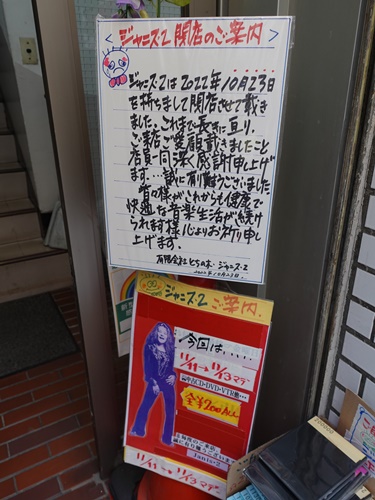 <ジャニス2閉店のご案内>
ジャニス・2は2022年10月23日
を持ちまして閉店させて戴き
ました。これまで長きに亘り、
ご来店ご愛顧戴きましたこと
店員一同深く感謝申し上げ
ます…誠に有難うございました。
皆々様がこれからも健康で
快適な音楽生活が続け
られます様心よりお祈り申し
上げます。
有限会社とちの木・ジャニス・2
2022年10月23日
ジャニス・2 ご案内.
今回は、、、、、
11/11→11/13マデ
CD・DVD・VTR
全¥200 ALL
Janis・2
11/11→11/13マデ